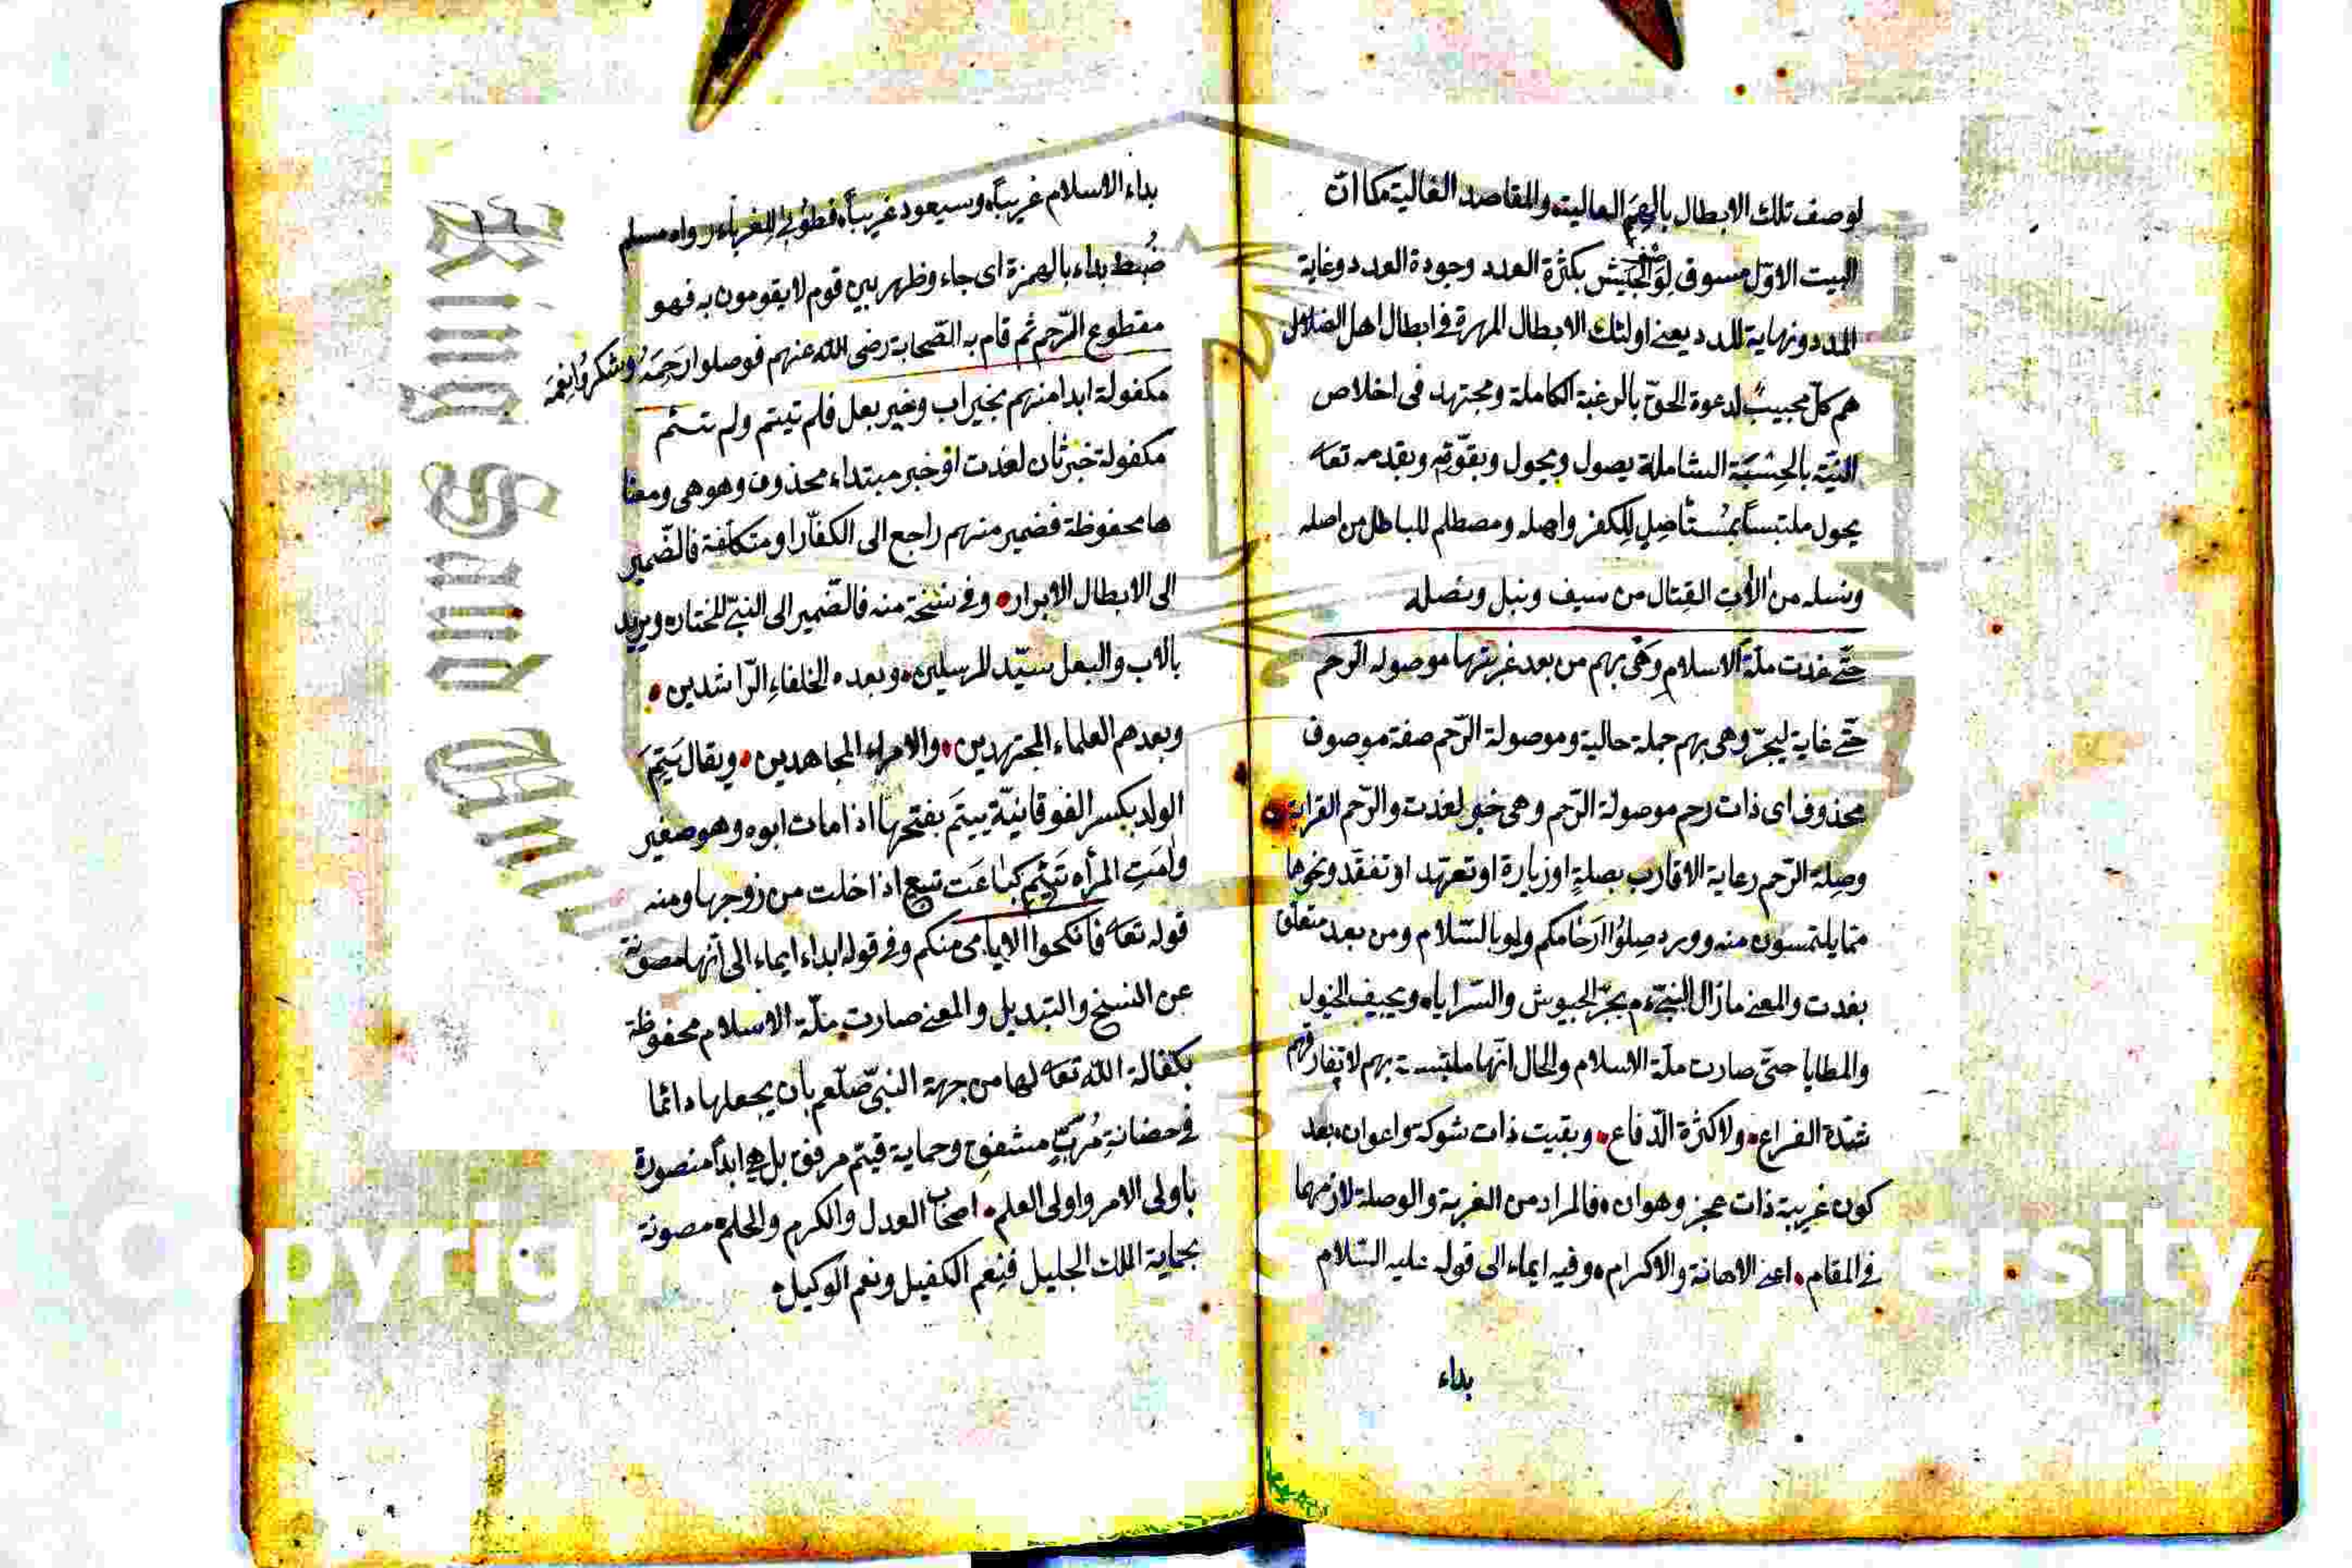 لوصف تلك الابطال بالهمم العالية والمقاصد الغالية كما انّ
البيت الاوّل مسوق لوصف الجيش بكثرة العدد وجودة العدد وغاية
المدد ونهاية اللدد يعنى اولئك الابطال المهرة فى ابطال اهل الضلال
هم كلّ مجيب لدعوة الحقّ بالرغبة الكاملة ومجتهد فى اخلاص
النيّة بالحسبة الشاملة يصول ويجول وبقوّته وبقدمه تعا
يحول ملتبساً بمستأصل للكفر واهله ومصطلم للباطل من اصله
ونسله من الات القتال من سيف ونبل ونصله
حتّى غدت ملّة الاسلام وهى بهم من بعد غربتها موصولة الرحم
حتّى غاية ليجرّ وهى بهم جملة حالية وموصولة الرّحم صفة موصوف
محذوف اى ذات رحم موصولة الرّحم وهى خبر لغدت والرّحم القرابة
وصلة الرّحم رعاية الاقارب بصلةٍ او زيارة او تعهّد او تفقّد ونحوها
ممّا يلتمسون منه وورد صلوا ارحامكم ولو بالسّلام ومن بعد متعلّق
بغدت والمعنى ما زال النبىّ عم يجرّ الجيوش والسّرايا الخيول
والمطايا حتّى صارت ملّة الاسلام والحال انّها ملتبسة بهم لا تفارقهم
شدّة القراع ولا كثرة الدّفاع وبقيت ذات شوكة واعوان بعد
كون غريبة ذات عجز وهوان فالمراد من الغربة والوصلة لازمهما
فى المقام اعنى الاهانة والاكرام وفيه ايماء الى قوله عليه السّلام
بداء
١٦
بداء الاسلام غريباً وسيعود غريباً فطوبى للغرباء رواه مسلم
ضُبط بداء بالهمزة اى جاء وظهر بين قوم لا يقومون به فهو
مقطوع الرّحم ثم قام به الصّحابة رضى الله عنهم فوصلوا رحمه وشكروا نعمه
مكفولة ابدا منهم بخير اب وخير بعل فلم تيتم ولم تئم
مكفولة خبر ثان لغدت او خبر مبتداء محذوف وهو هى ومعنا
ها محفوظة فضمير منهم راجع الى الكفّار او متكلّفة فالضّمير
الى الابطال الابرار وفى نسخة منه فالضّمير الى النبىّ المختار ويريد
بالاب والبعل سيّد المرسلين وبعده الخلفاء الرّاشدين
وبعدهم العلماء المجتهدين والامراء المجاهدين ويقال يتم
الولد بكسر الفوقانيّة ييتم بفتحها اذا مات ابوه وهو صغير
وامت المرأه تئيم كباعت تبيع اذا خلت من زوجها ومنه
قوله تعا فانكحوا الايامى منكم وفى قوله ابدا ايماء الى انّها مصونة
عن النسخ والتبديل والمعنى صارت ملّة الاسلام محفوظة
بكفالة الله تعا لها من جهة النبىّ صلعم بان يجعلها دائما
فى حضانة مُربٍّ مشفق وحماية قيّم مرفق بل هى ابداً منصورة
باولى الامر واولى العلم اصحاب العدل والكرم والحلم مصونة
بحماية الملك الجليل فنعم الكفيل ونعم الوكيل
King Saud
Copyright
ersity